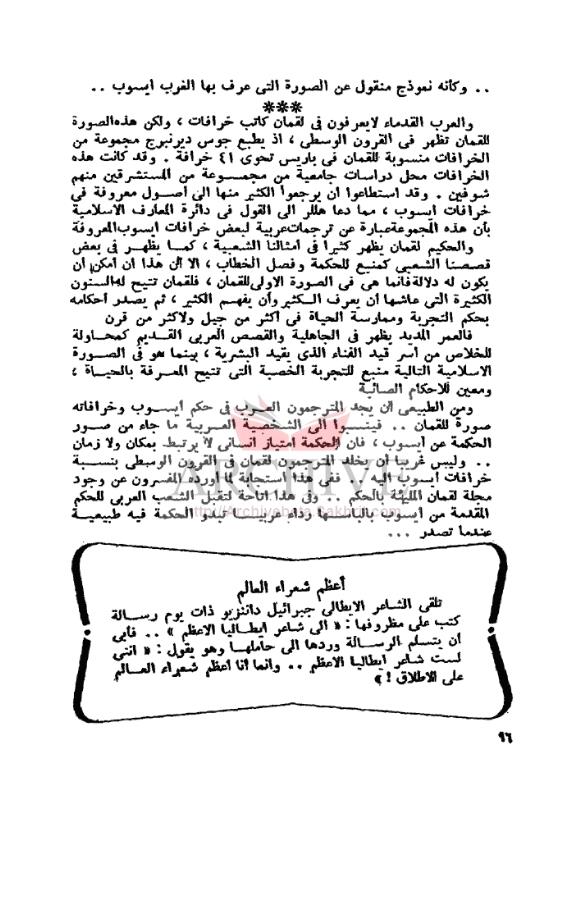 .. وكأنه نموذج منقول عن الصورة التى عرف بها الغرب ايسوب ..
***
والعرب القدماء لايعرفون فى لقمان كاتب خرافات ، ولكن هذهالصورة
للقمان تظهر فى القرون الوسطى ، اذ يطبع جوس ديرنبرج مجموعة من
الخرافات منسوبة للقمان فى باريس تحوى ٤١ خرافة . وقد كانت هذه
الخرافات محل دراسات جامعية من مجمسوعة من المستشرقين منهم
شوفين . وقد استطاعوا ان يرجعوا الكثير منها الى أصسول معروفة فى
خرافات ايسوب ، مما دعا هللر الى القول فى دائرة المعارف الاسلامية
بأن هذه المجموعةعبارة عن ترجماتعربية لبعض خرافات ايسوبالمعروفة
والحكيم لقمان يظهر كثيرا فى أمثالنا الشعبية ، كمسا يظهسر فى بعض
قصصنا الشعبى كمنبع للحكمة وفصل الخطاب ، الا أن هذا ان أمكن أن
يكون له دلالةفانما هى فى الصورة الاولىللقمان ، فلقمان تتيح لهالسنون
الكثيرة التى عاشها أن يعرف الكثيروأن يفهم الكثير ، ثم يصدر أحكامه
بحكم التجربة وممارسة الحياة فى أكثر من جيل ولاكثر من قرن
فالعمر المديد يظهر فى الجاهلية والقصص العربى القديم كمحاولة
للخلاص من أسر قيد الفناء الذى يقيد البشرية ، بينما هو فى الصورة
الاسلامية التالية منبع للتجربة الخصبة التى تتيح المعرفة بالحياة ،
ومعين للاحكام الصائبة
ومن الطبيعى أن يجد المترجمون العرب فى حكم ايسوب وخرافاته
صورة للقمان .. فينسبوا الى الشخصية العربية ما جاء من صور
الحكمة عن ايسوب ، فان الحكمة امتياز انسانى لا يرتبط بمكان ولا زمان
.. وليس غريبا أن يخلد المترجمون لقمان فى القرون الوسطى بنسبة
خرافات ايسوب اليه .. ففى هذا استجابة لما أورده المفسرون عن وجود
مجلة لقمان المليئة بالحكم .. وفى هذا اتاحة لتقبل الشعب العربى للحكم
المقدمة من ايسوب بالباسها رداء عربيا تبدو الحكمة فيه طبيعية
عندما تصدر ...
ARCHIVE
http://Archivebeta.Sakhrit.com
أعظم شعراء العالم
تلقى الشاعر الايطالى جبرائيل داننزيو ذات يوم رسالة
كتب على مظروفها : « الى شاعر ايطاليا الاعظم » .. فأبى
أن يتسلم الرسالة وردها الى حاملها وهو يقول : « اننى
لست شاعر ايطاليا الاعظم .. وانما أنا أعظم شعراء العالم
على الاطلاق ! »
٩٦